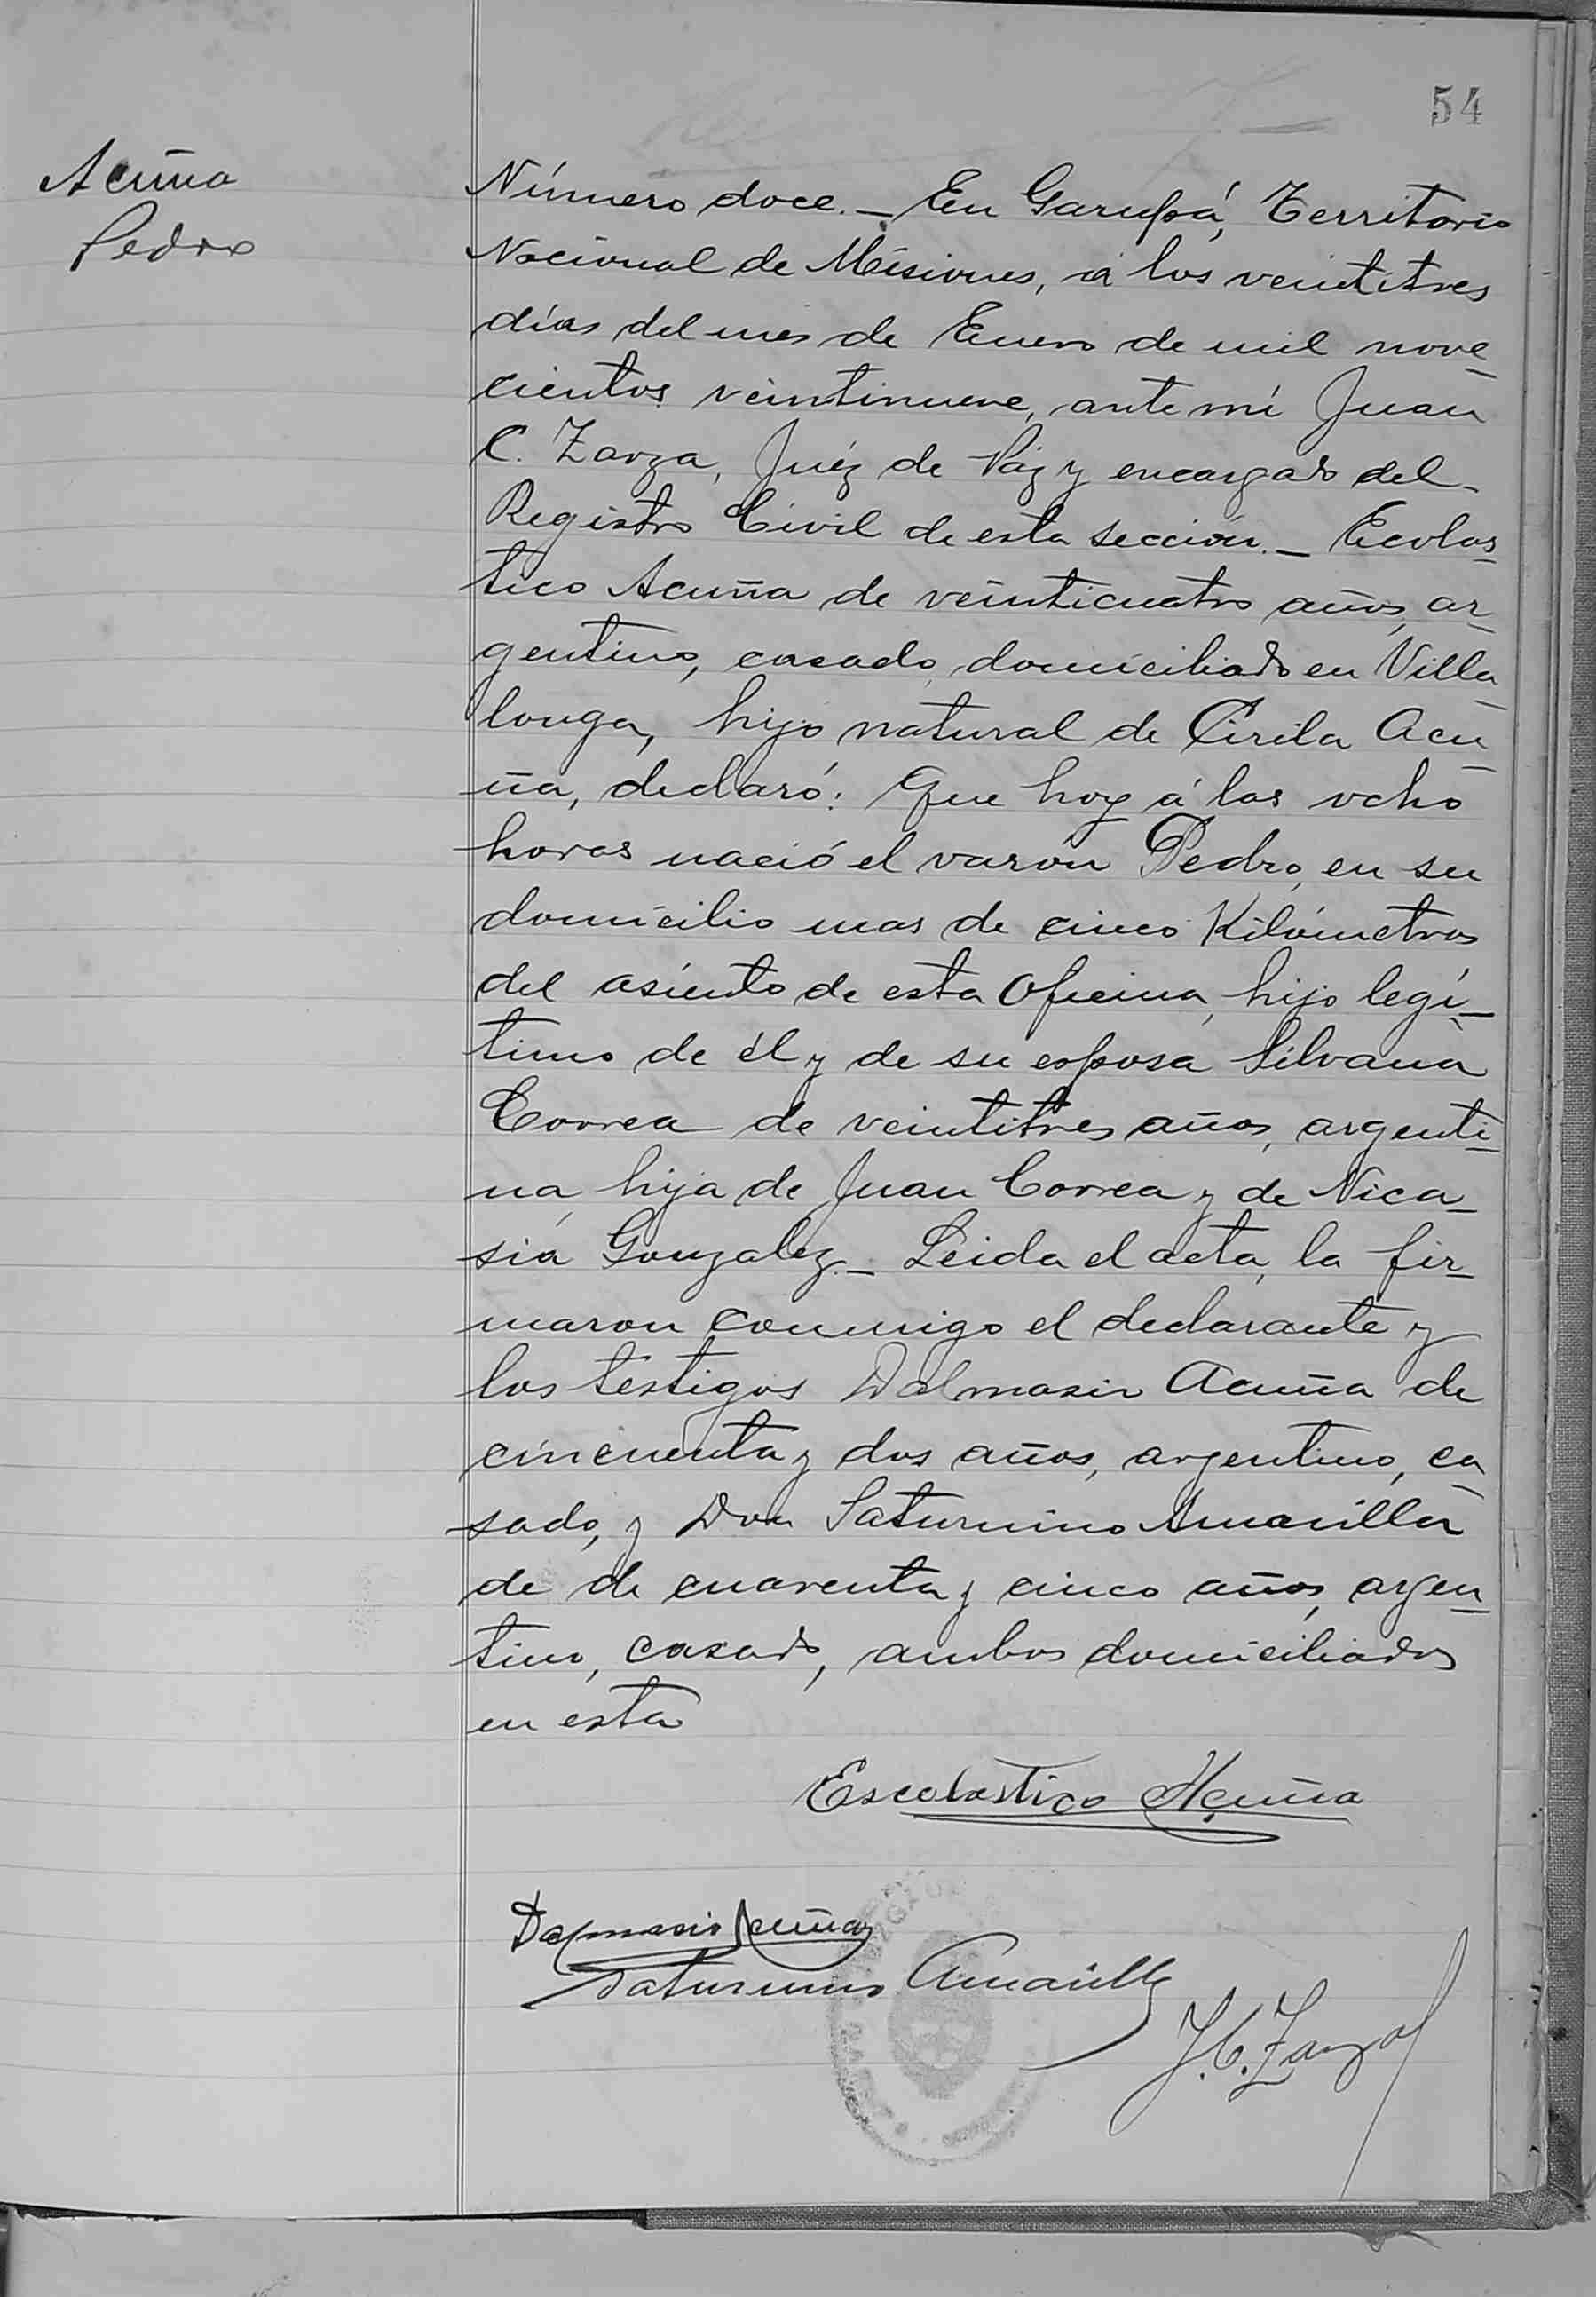 54
Acuña
Pedro
Número doce. _ En Garupá, Territorio
Nacional de Misiones, á los veintitres
días del mes de Enero de mil nove_
cientos veintinueve, ante mí Juan
C. Zarza, Juéz de Páz y encargado del_
Registro Civil de esta sección._ Ecolas_
tico Acuña de veinticuatro años, ar_
gentino, casado, domiciliado en Villa_
longa, hijo natural de Cirila Acu_
ña, declaró: Que hoy á las ocho
horas nació el varón Pedro, en su
domicilio mas de cinco Kilómetros
del asiento de esta Oficina, hijo legí_
timo de él y de su esposa Silvana
Correa de veintitres años, argenti_
na, hija de Juan Correa y de Nica_
sia Gonzalez._ Leida el acta, la fir_
maron conmigo el declarante y
los testigos Dalmasio Acuña de
cincuenta y dos años, argentino, ca_
sado, y Don Saturnino Amarilla
de de cuarenta y cinco años, argen_
tino, casado, ambos domiciliados
en esta
Escolastico Acuña
Dalmasio Acuña
Saturnino Amarilla
J. C. Zarza